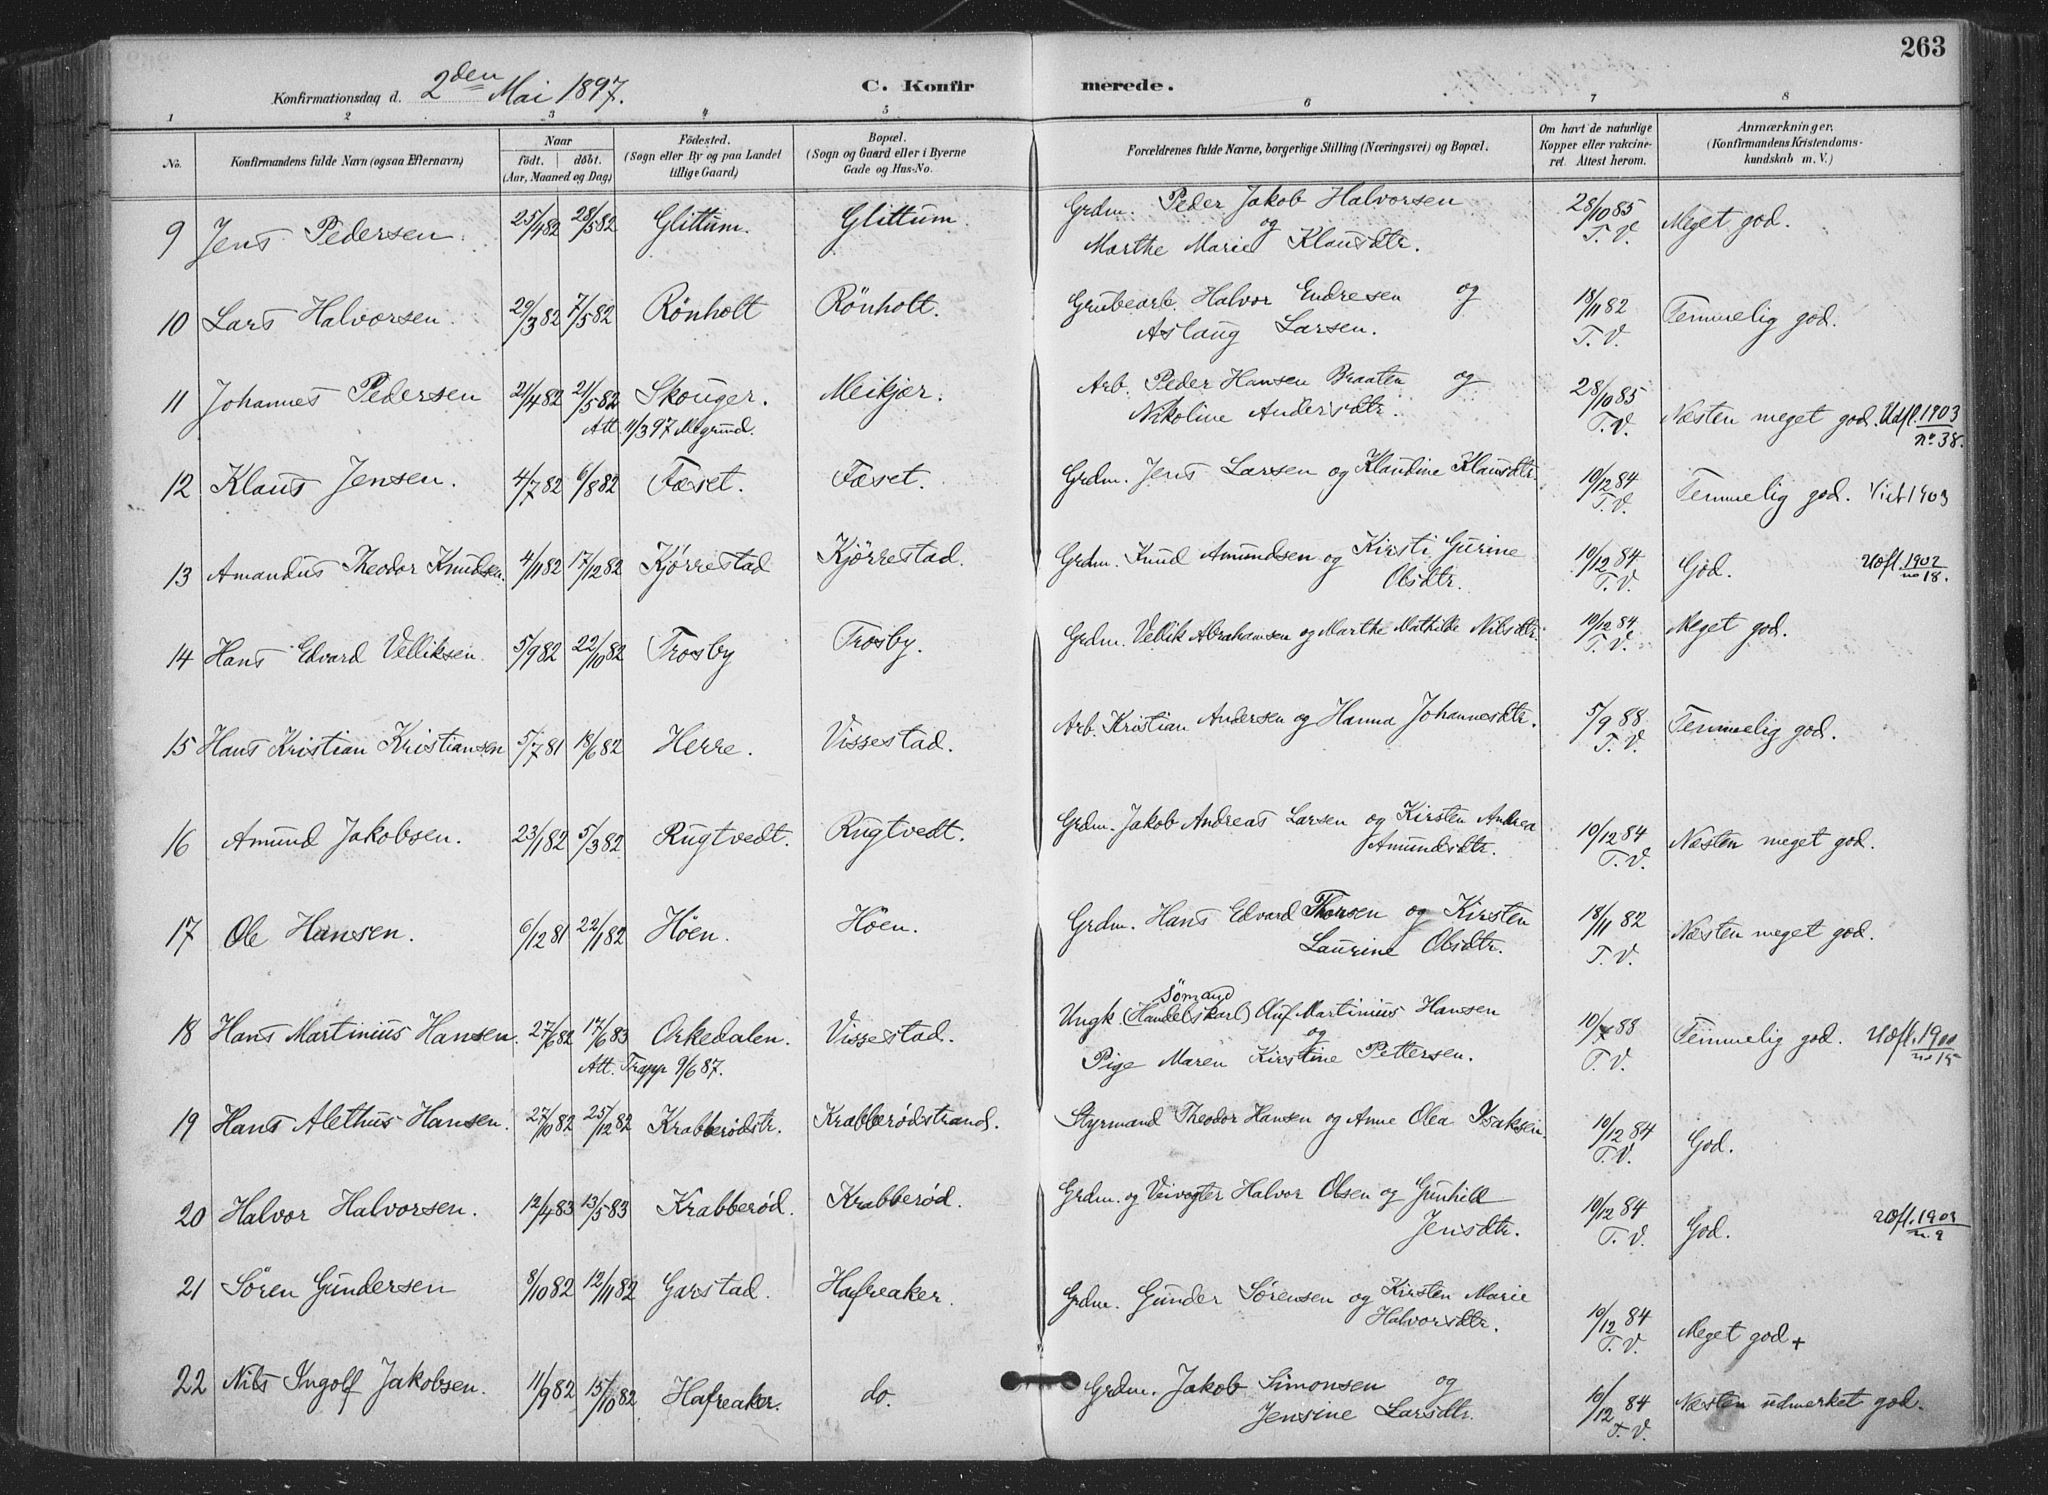 263
Konfirmationsdag d. 2den Mai 1897.
C. Konfirmerede.
1 2 3 4 5 6 7 8
No.
Konfirmandens fulde Navn (ogsaa Efternavn)
Naar
födt. döbt.
(Aar, Maaned og Dag)
Födested.
(Sogn eller By og paa Landet
tillige Gaard)
Bopæl.
(Sogn og Gaard eller i Byerne
Gade og Hus-No.
Forældrenes fulde Navne, borgerlige Stilling (Næringsvei) og Bopæl.
Om havt de naturlige
Kopper eller vakcine-
ret. Attest herom.
Anmærkninger.
(Konfirmandens Kristendoms-
kundskab m. V.)
9 Jens Pedersen. 25/4 82 28/5 82 Glittum. Glittum. Grdm. Peder Jakob Halvorsen
og
Marthe Marie Klausdtr. 28/10 85 T. V. Meget god.
10 Lars Halvorsen. 29/3 82 7/5 82 Rönholt Rönholt. Grubearb. Halvor Endresen og
Aslaug Larsen. 18/11 82 T. V. Temmelig god.
11 Johannes Pedersen 21/4 82 21/5 82 Skouger. Meikjær. Arb. Peder Hansen Braaten og
Att. 11/3 97
Nikoline Andersdtr. 28/10 85 T. V. Næsten meget god. Udfl. 1903
no 38.
12 Klaus Jensen. 4/7 82 6/8 82 Fæset. Fæset. Grdm. Jens Larsen og Klaudine Klausdtr. 10/12 84 T. V. Temmelig god. Viet 1903
13 Amandus Theodor Knudsen. 4/11 82 17/12 82 Kjörrestad Kjörrestad. Grdm. Knud Amundsen og Kirsti Gurine
Olsdtr. 10/12 84 T. V. God. Udfl. 1902
no 18.
14 Hans Edvard Velliksen. 5/9 82 22/10 82 Trosby Trosby. Grdm. Vellik Abrahamsen og Marthe Mathilde Nilsdtr. 10/12 84 T. V. Meget god.
15 Hans Kristian Kristiansen 5/7 81 18/6 82 Herre. Vissestad. Arb. Kristian Andersen og Hanna Johannesdtr. 5/9 88 T. V. Temmelig god.
16 Amund Jakobsen. 23/1 82 5/3 82. Rugtvedt. Rugtvedt. Grdm. Jakob Andreas Larsen og Kirsten Andrea
Amundsdtr. 10/12 84 T. V. Næsten meget god.
17 Ole Hansen. 6/12 81 22/1 82 Höen. Höen. Grdm. Hans Edvard Thorsen og Kirsten
Laurine Olsdtr. 18/11 82 T. V. Næsten meget god.
18 Hans Martinius Hansen. 27/6 82 17/6 83 Orkedalen. Vissestad. Ungk. (Handelskarl) Sömand Oluf Martinius Hansen
og
Att. Trapp 9/6 87.
Pige Maren Kirstine Pettersen. 10/7 88 T. V. Temmelig god. Udfl. 1900
no 15
19 Hans Alethus Hansen. 27/10 82 25/12 82 Krabberödstr. Krabberödstrand. Styrmand Theodor Hansen og Anne Olea Isaksen. 10/12 84 T. V. God.
20 Halvor Halvorsen. 12/4 83 13/5 83 Krabberöd. Krabberöd. Grdm. og Veivogter Halvor Olsen og Gunhild
Jensdtr. 10/12 84 T. V. God. Udfl. 1903
n. 9
21 Sören Gundersen 8/10 82 12/11 82 Garstad. Hafreaker. Grdm. Gunder Sörensen og Kirsten Marie
Halvorsdtr. 10/12 84 T. V. Meget god +
22 Nils Ingolf Jakobsen. 11/9 82 15/10 82 Hafreaker. do. Grdm. Jakob Simonsen og
Jensine Larsdtr. 10/12 84 T. V. Næsten udmerket god.